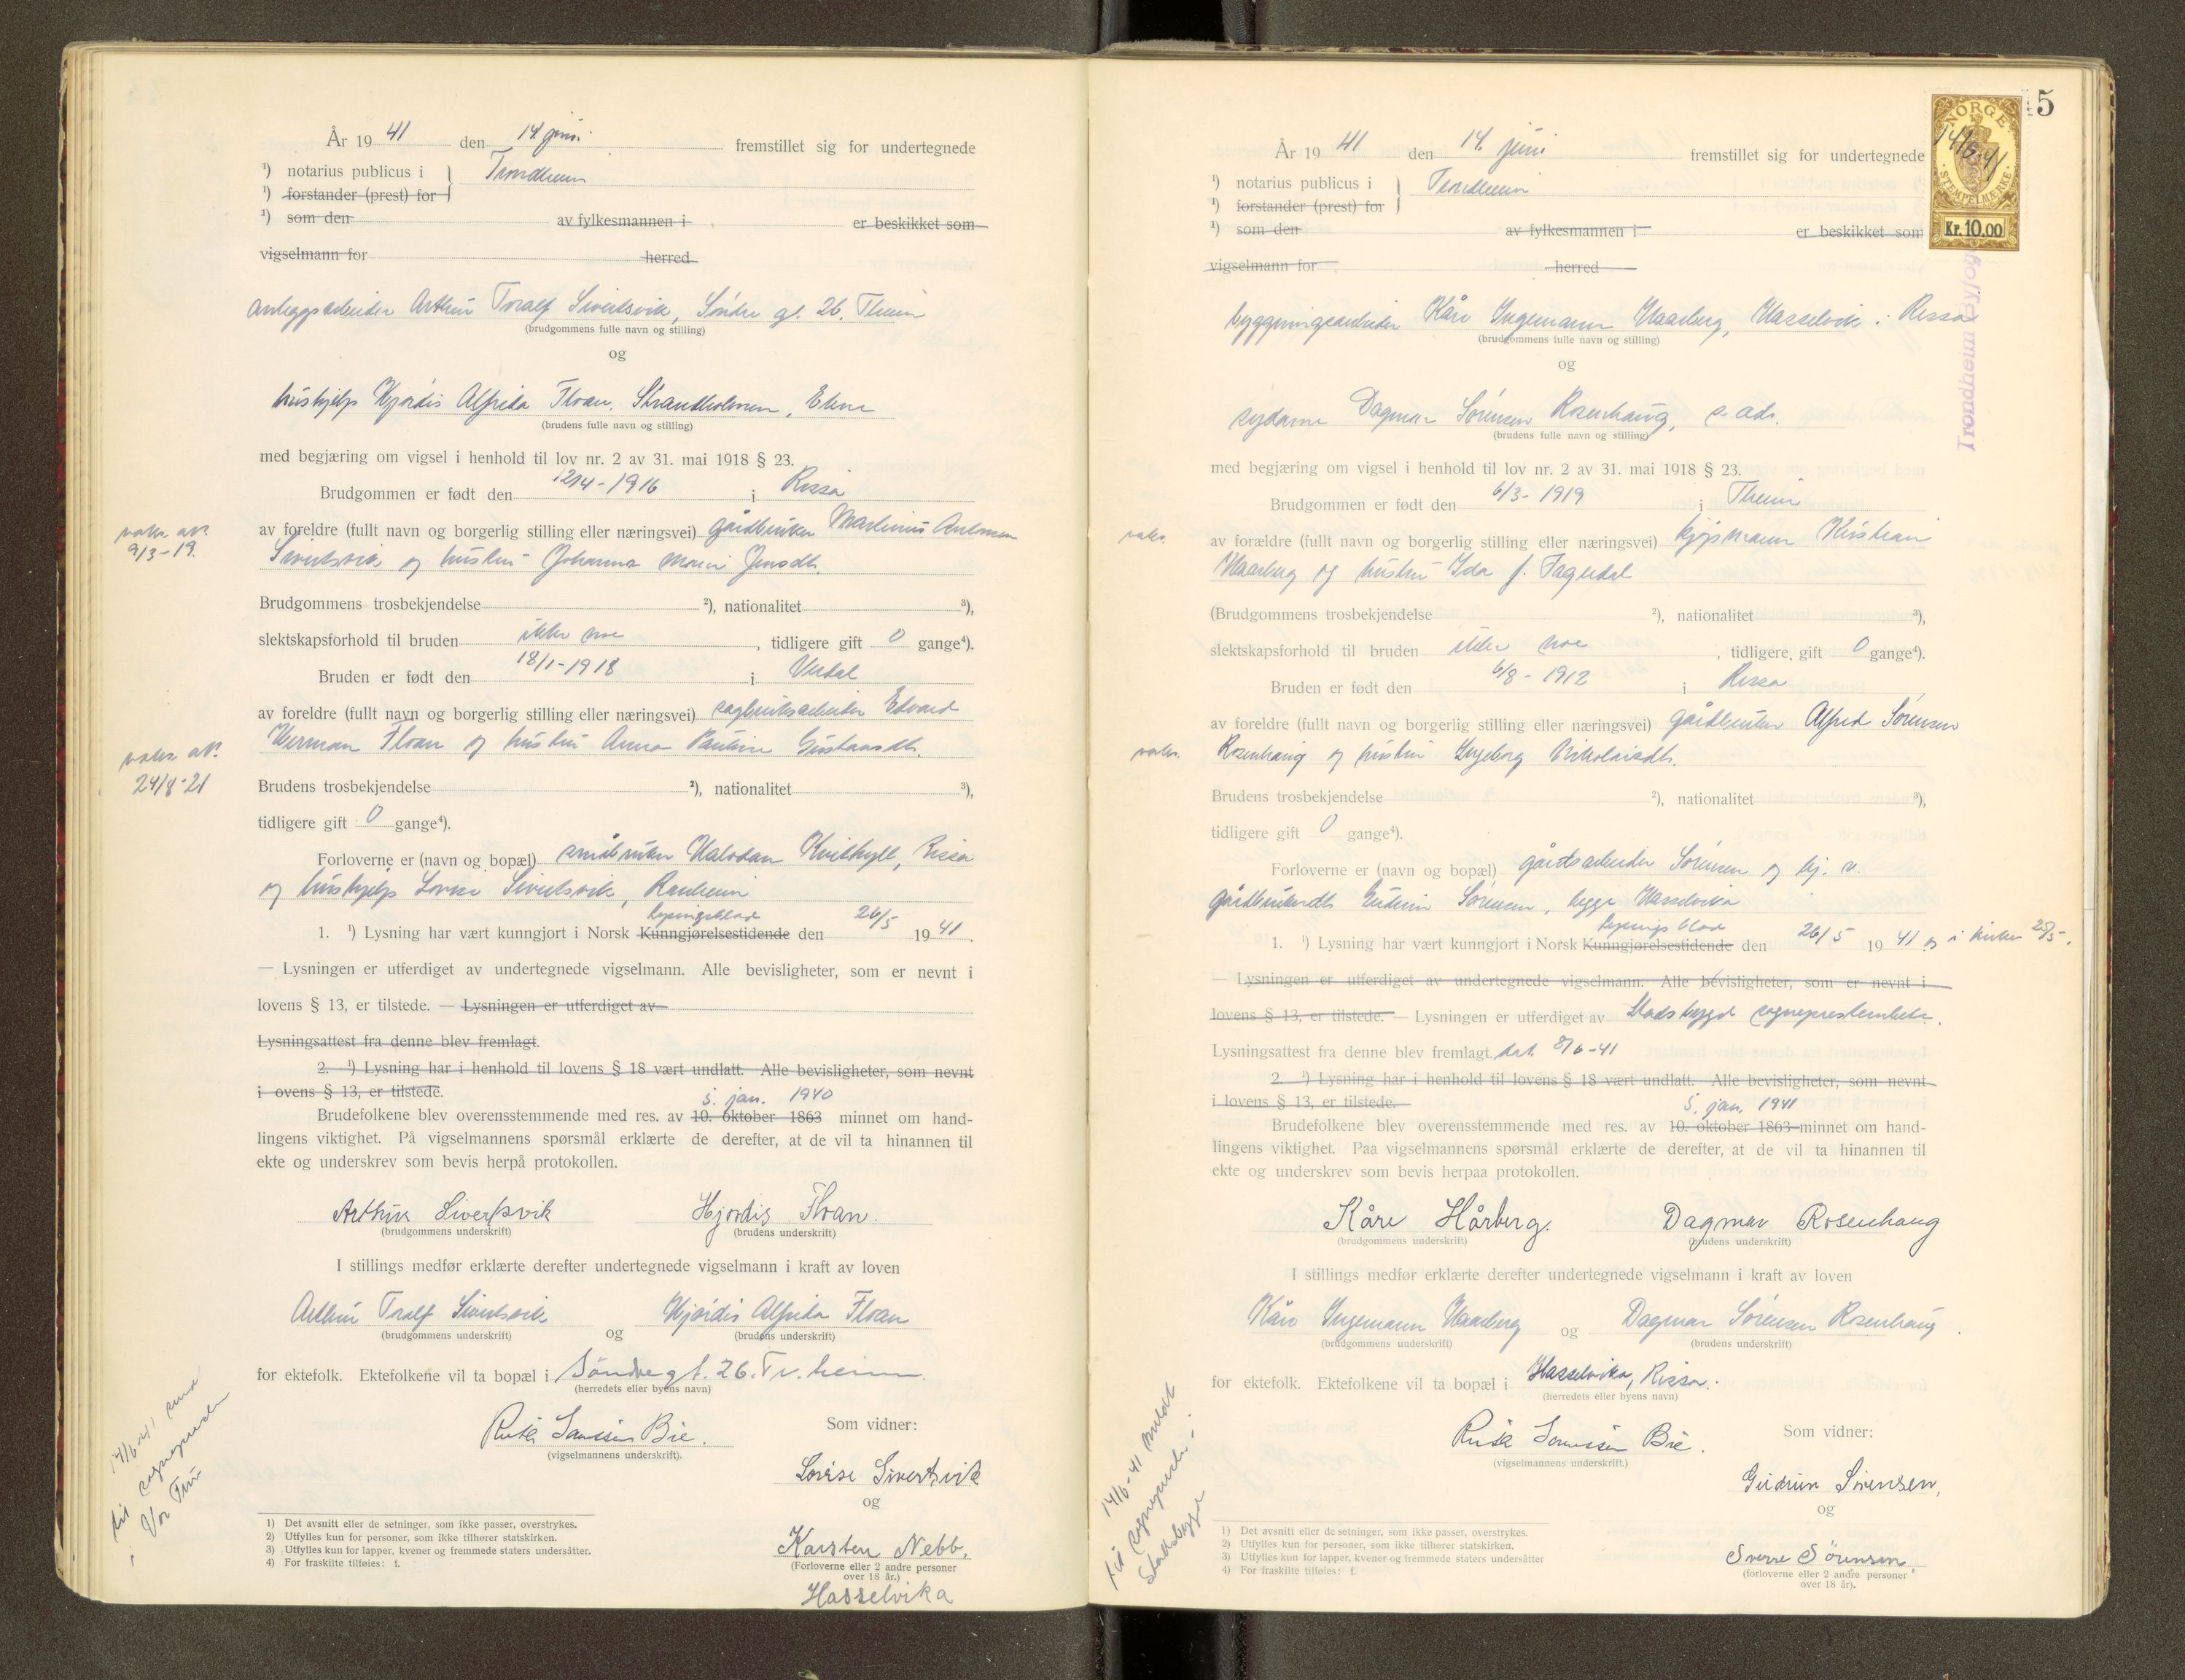 År 19 41 den 14. juni. fremstillet sig for undertegnede
¹) notarius publicus i } Trondheim
¹) forstander (prest) for
¹) som den av fylkesmannen i er beskikket som
vigselmann for herred
anleggsarbeider Arthur Toralf Sivertsvik, Søndre gt. 26. Theim
(brudgommens fulle navn og stilling)
og
hushjelp Hjørdis Alfrida Floan, Strandholmen, Ekne
(brudens fulle navn og stilling)
med begjæring om vigsel i henhold til lov nr. 2 av 31. mai 1918 § 23.
Brudgommen er født den 12/4-1916 i Rissa
vaks. att. 9/3-19.
av foreldre (fullt navn og borgerlig stilling eller næringsvei) gårdbruker Martinus
Sivertsvik og hustru Johanna Marie Jensdtr.
Brudgommens trosbekjendelse ²), nationalitet ³),
slektskapsforhold til bruden ikke noe, tidligere gift 0 gange⁴).
Bruden er født den 18/1-1918 i Verdal
av foreldre (fullt navn og borgerlig stilling eller næringsvei) sagbruksarbeider Edvard
vaks. att. 24/8-21
Herman Floan og hustru Anna Pauline Gustavsdtr.
Brudens trosbekjendelse ²), nationalitet ³),
tidligere gift 0 gange⁴).
Forloverne er (navn og bopæl) småbruker Halvdan Kvithyll, Rissa
og hushjelp Lovise Sivertsvik, Ranheim
lysingsblad
1. ¹) Lysning har vært kunngjort i Norsk Kunngjørelsestidende den 26/5 19 41.
— Lysningen er utferdiget av undertegnede vigselmann. Alle bevisligheter, som er nevnt i
lovens § 13, er tilstede. — Lysningen er utferdiget av
Lysningsattest fra denne blev fremlagt.
2. ¹) Lysning har i henhold til lovens § 18 vært undlatt. Alle bevisligheter, som nevnt
i ovens § 13, er tilstede.
5. jan. 1940
Brudefolkene blev overensstemmende med res. av 10. oktober 1863 minnet om hand-
lingens viktighet. På vigselmannens spørsmål erklærte de derefter, at de vil ta hinannen til
ekte og underskrev som bevis herpå protokollen.
Arthur Sivertsvik Hjordis Floan.
(brudgommens underskrift) (brudens underskrift)
I stillings medfør erklærte derefter undertegnede vigselmann i kraft av loven
Arthur Toralf Sivertsvik og Hjørdis Alfrida Floan
(brudgommens underskrift) (brudens underskrift)
for ektefolk. Ektefolkene vil ta bopæl i Søndregt. 26. Tr.heim.
(herredets eller byens navn)
14/6-41 send til sogneprest i Vor Frue
Bie.
(vigselmannens underskrift).
Som vidner:
Lovise Sivertsvik
og
Karsten Nebb,
(Forloverne eller 2 andre personer
over 18 år.)
Hasselvika
1) Det avsnitt eller de setninger, som ikke passer, overstrykes.
2) Utfylles kun for personer, som ikke tilhører statskirken.
3) Utfylles kun for lapper, kvener og fremmede staters undersåtter.
4) For fraskilte tilføies: f.
45
NORGE
14/6.41
STEMPELMÆRKE
Kr. 10.00
Trondheim Byfog
År 19 41 den 14. juni. fremstillet sig for undertegnede
¹) notarius publicus i } Trondheim
¹) forstander (prest) for
¹) som den av fylkesmannen i er beskikket som
vigselmann for herred
byggningsarbeider Kåre Ingemann Haarberg, Hasselvik i Rissa
(brudgommens fulle navn og stilling)
og
sydame Dagmar Sørensen Rosenhaug, s. ads.
(brudens fulle navn og stilling)
med begjæring om vigsel i henhold til lov nr. 2 av 31. mai 1918 § 23.
Brudgommen er født den 6/3-1919 i Theim
vaks.
av forældre (fullt navn og borgerlig stilling eller næringsvei) kjøpmann Kristian
Haarberg og hustru Ida f. Fagerdal
(Brudgommens trosbekjendelse ²), nationalitet ³),
slektskapsforhold til bruden ikke noe, tidligere gift 0 gange⁴).
Bruden er født den 6/8-1912 i Rissa
av foreldre (fullt navn og borgerlig stilling eller næringsvei) gårdbruker Alfred Sørensen
vaks.
Rosenhaug og hustru Ingeborg Nikolaisdtr.
Brudens trosbekjendelse ²), nationalitet ³),
tidligere gift 0 gange⁴).
Forloverne er (navn og bopæl) gårdsarbeider Sørensen og
gårdbrukerdtr. Gudrun Sørensen, begge Hasselvika
lysings blad
1. ¹) Lysning har vært kunngjort i Norsk Kunngjørelsestidende den 26/5 19 41 og i kirken 25/5.
— Lysningen er utferdiget av undertegnede vigselmann. Alle bevisligheter, som er nevnt i
lovens § 13, er tilstede. — Lysningen er utferdiget av Stadsbygd sogneprestembete.
Lysningsattest fra denne blev fremlagt, dat. 8/6-41
2. ¹) Lysning har i henhold til lovens § 18 vært undlatt. Alle bevisligheter, som nevnt
i lovens § 13, er tilstede.
5. jan. 1941
Brudefolkene blev overensstemmende med res. av 10. oktober 1863 minnet om hand-
lingens viktighet. Paa vigselmannens spørsmål erklærte de derefter, at de vil ta hinannen til
ekte og underskrev som bevis herpaa protokollen.
Kåre Hårberg. Dagmar Rosenhaug
(brudgommens underskrift) (brudens underskrift)
I stillings medfør erklærte derefter undertegnede vigselmann i kraft av loven
Kåre Ingemann Haarberg og Dagmar Sørensen Rosenhaug.
(brudgommens underskrift) (brudens underskrift)
for ektefolk. Ektefolkene vil ta bopæl i Hasselvika, Rissa.
(herredets eller byens navn)
14/6-41 meldt til sogneprest i Stadsbygd
Bie.
(vigselmannens underskrift.)
Som vidner:
Gudrun Sørensen,
og
Sverre Sørensen
(forloverne eller 2 andre personer
over 18 år).
1) Det avsnitt eller de setninger, som ikke passer, overstrykes.
2) Utfylles kun for personer, som ikke tilhører statskirken.
3) Utfylles kun for lapper, kvener og fremmede staters undersåtter
4) For fraskilte tilføies: f.